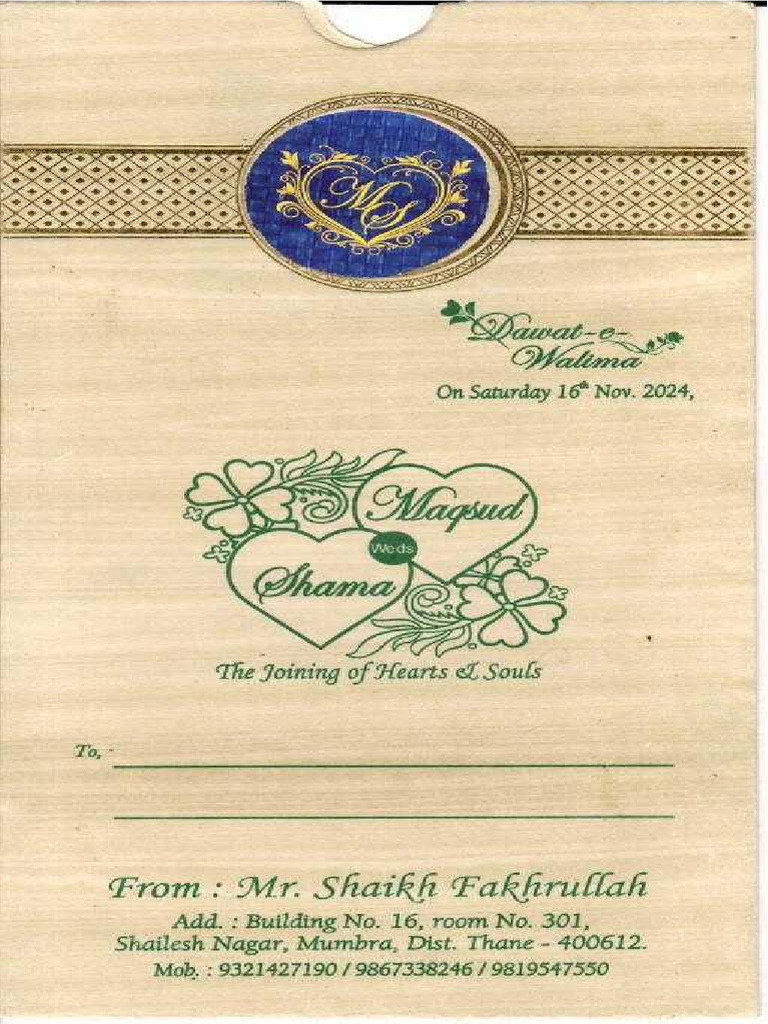 MS
Dawat-e-
Walima
On Saturday 16th Nov. 2024,
Maqsud
Weds
Shama
The Joining of Hearts & Souls
To, -
From : Mr. Shaikh Fakhrullah
Add. : Building No. 16, room No. 301,
Shailesh Nagar, Mumbra, Dist. Thane - 400612.
Mob. : 9321427190 / 9867338246 / 9819547550